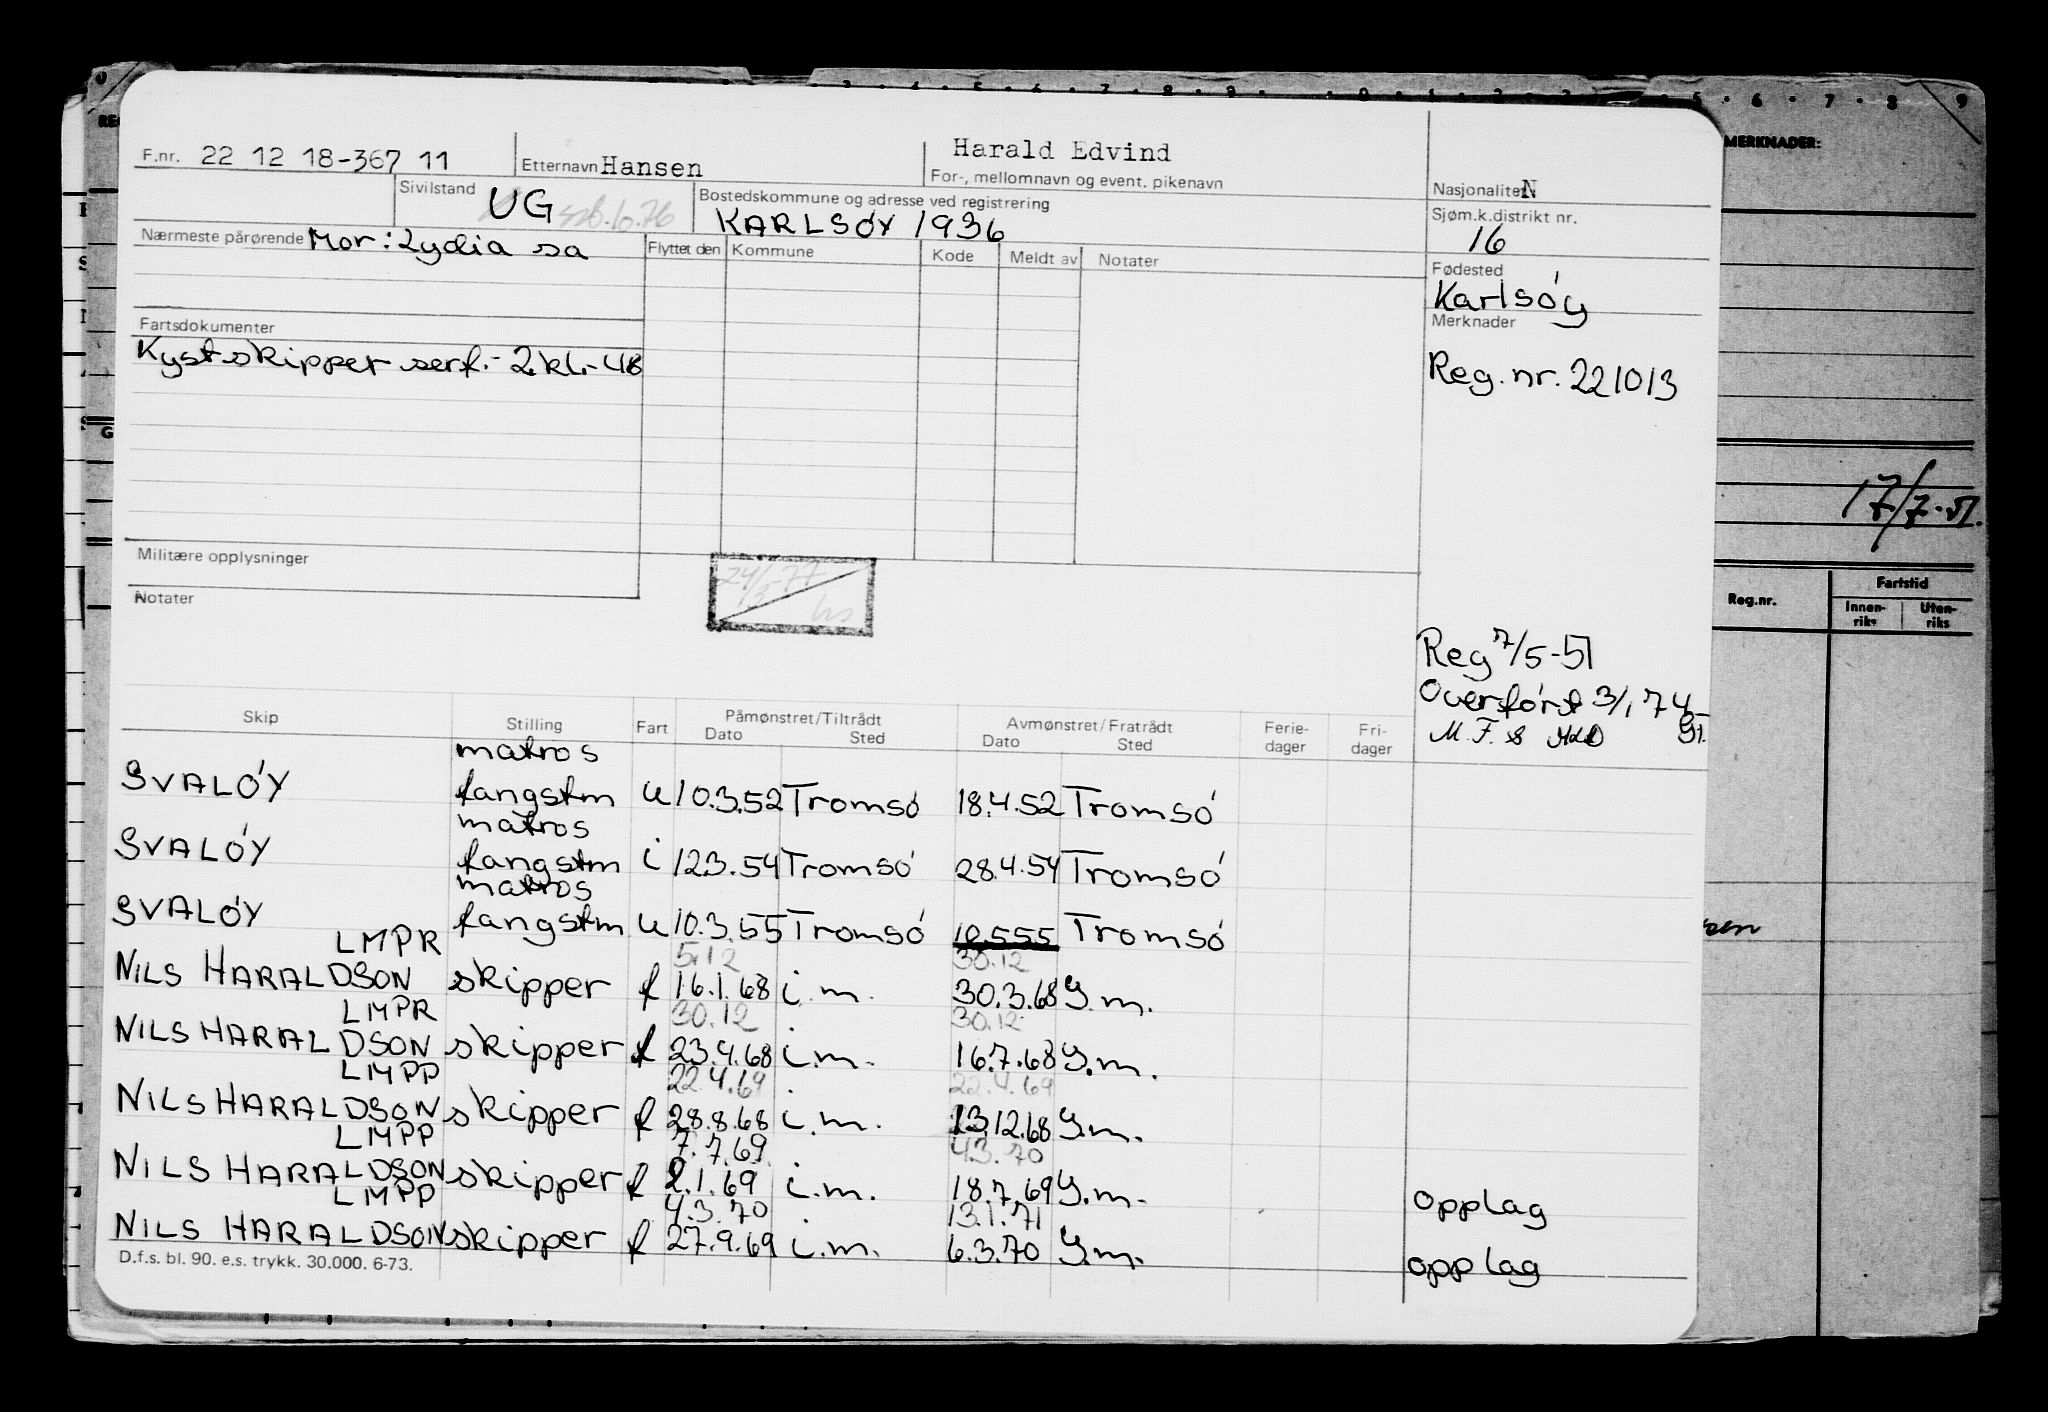 MERKNADER:
F.nr. 22 12 18-367 11 Etternavn Hansen Harald Edvind
For-, mellomnavn og event. pikenavn
Nasjonalitet N
Sivilstand UG Bostedskommune og adresse ved registrering
KARLSÓY 1936
Sjøm.k.distrikt nr.
16
Nærmeste pårørende Mor: Lydia sa
Flyttet den Kommune Kode Meldt av Notater
Fødested
Karlsóy
Merknader
Fartsdokumenter
Kystskipper serf.- 2.kl.-48
Reg.nr. 221013
17/7-51.
Militære opplysninger
24/3-77
Notater
Reg.nr. Fartstid
Innen-riks Uten-riks
Reg 7/5-51
Overfórt 3/1 74
M.F.S
Skip Stilling Fart Påmønstret/Tiltrådt Avmønstret/Fratrådt Ferie-dager Fri-dager
Dato Sted Dato Sted
matros
SVALÓY fangstm u 10.3.52 Tromsó 18.4.52 Tromsó
matros
SVALÓY fangstm i 12.3.54 Tromsó 28.4.54 Tromsó
matros
SVALÓY fangstm u 10.3.55 Tromsó 10.5.55 Tromsó
LMPR 5.12 30.12
NILS HARALDSON skipper f 16.1.68 i.m. 30.3.68 y.m.
LMPR 30.12 30.12
NILS HARALDSON skipper f 23.4.68 i.m. 16.7.68 y.m.
LMPP 22.4.69 22.4.69
NILS HARALDSON skipper f 28.8.68 i.m. 13.12.68 y.m.
LMPP 7.7.69 4.3.70
NILS HARALDSON skipper f 2.1.69 i.m. 18.7.69 y.m. opplag
LMPP 4.3.70 13.1.71
NILS HARALDSON skipper f 27.9.69 i.m. 6.3.70 y.m. opplag
D.f.s. bl. 90. e.s. trykk. 30.000. 6-73.